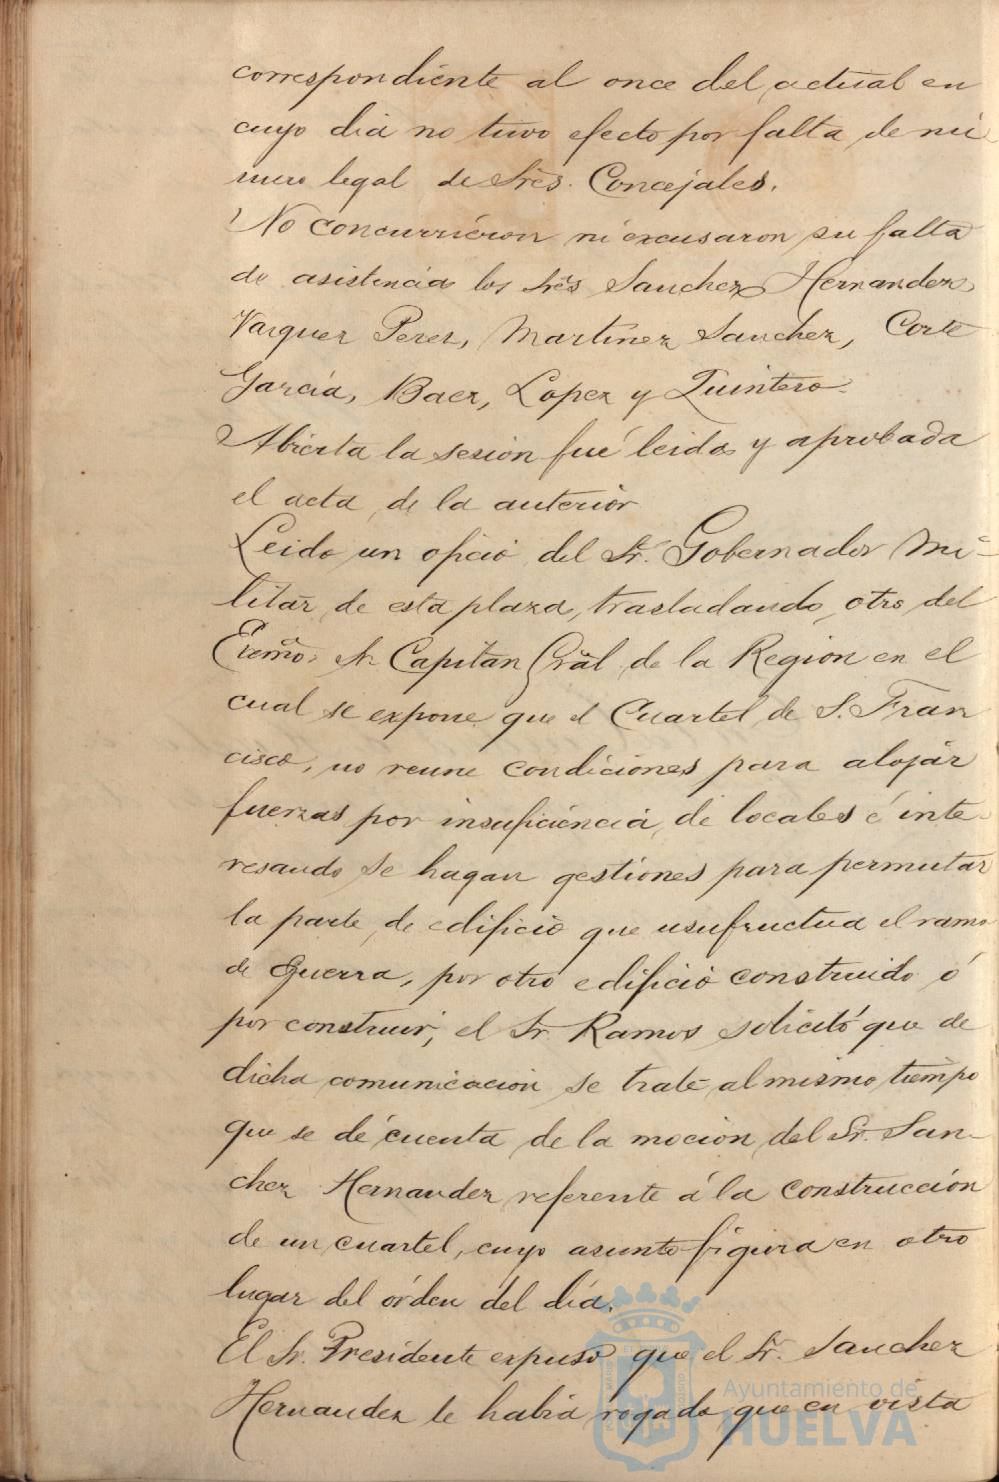 correspondiente al once del actual en
cuyo dia no tuvo efecto por falta de nú
mero legal de Sres. Concejales.
No concurrieron ni excusaron su falta
de asistencia los Sres Sanchez Hernandez
Vazquez Perez, Martinez Sanchez, Corte
Garcia, Baez, Lopez y Quintero
Abierta la sesion fué leida y aprobada
el acta de la anterior
Leido un oficio del Sr. Gobernador Mi-
litar de esta plaza, trasladando otro del
Excmo. Sr Capitan Gral de la Region en el
cual se expone que el Cuartel de S. Fran
cisco, no reune condiciones para alojar
fuerzas por insuficiencia de locales é inte-
resando se hagan gestiones para permutar
la parte de edificio que usufructua el ramo
de Guerra, por otro edificio construido ó
por construir, el Sr Ramos solicitó que de
dicha comunicacion se trate al mismo tiempo
que se dé cuenta de la mocion del Sr. San-
chez Hernandez referente á la construcción
de un cuartel, cuyo asunto figura en otro
lugar del órden del dia.
El Sr. Presidente expuso que el Sr. Sanchez
Hernandez le habia rogado que en vista
Ayuntamiento de
HUELVA